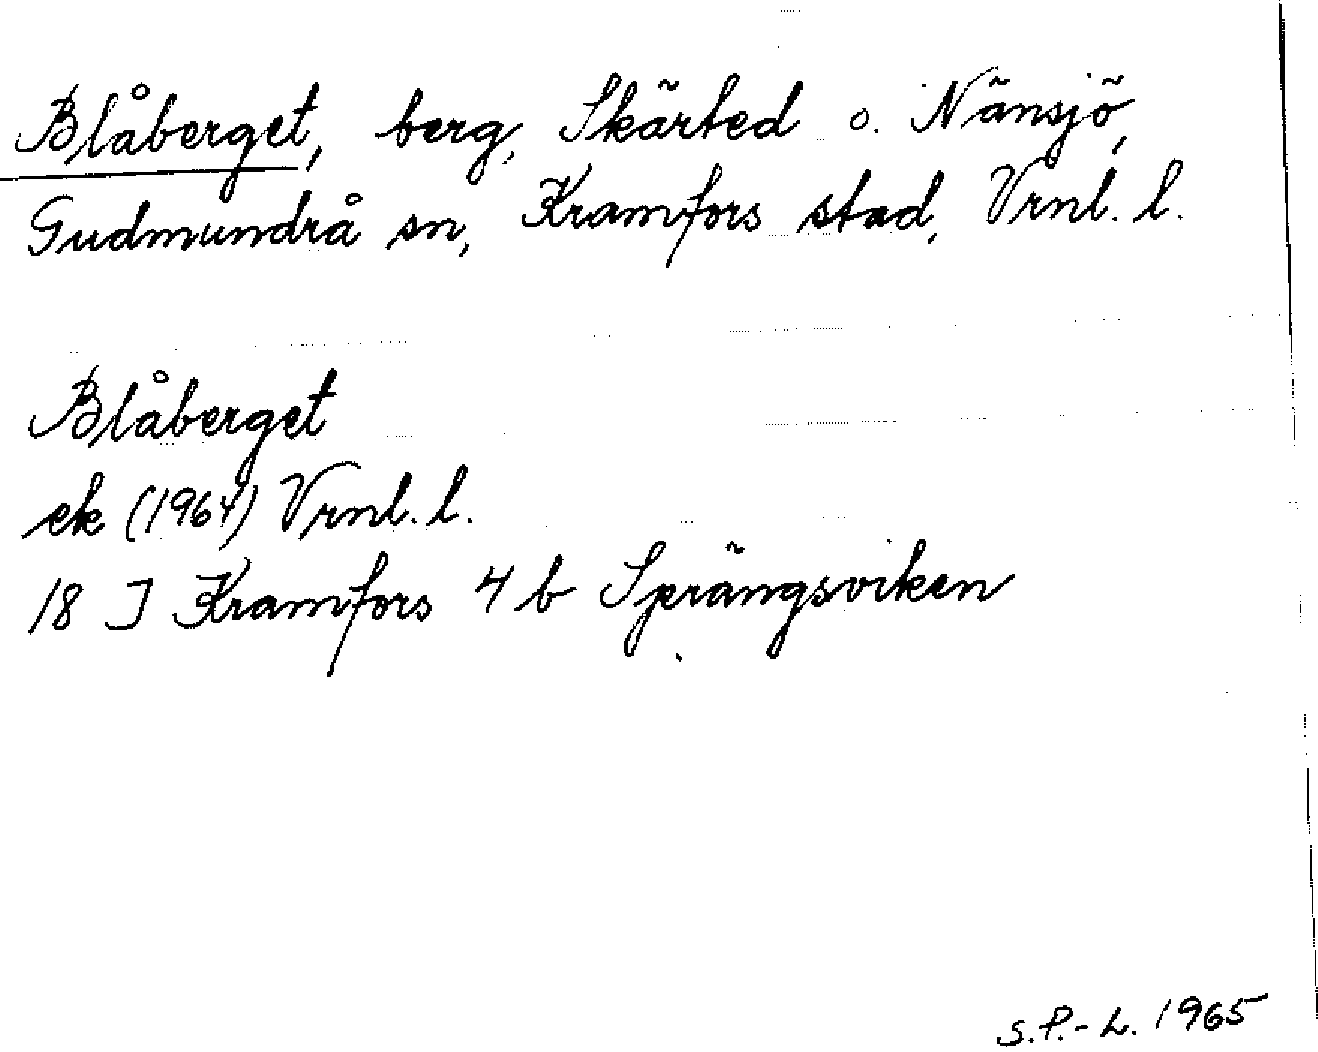 Blåberget, berg, Skärted o. Nänsjö,
Gudmundrå sn, Kramfors stad, Vrnl. l.
Blåberget
ek (1964) Vrnl. l.
18 J Kramfors 4 b Sprängsviken
S.P.-L. 1965